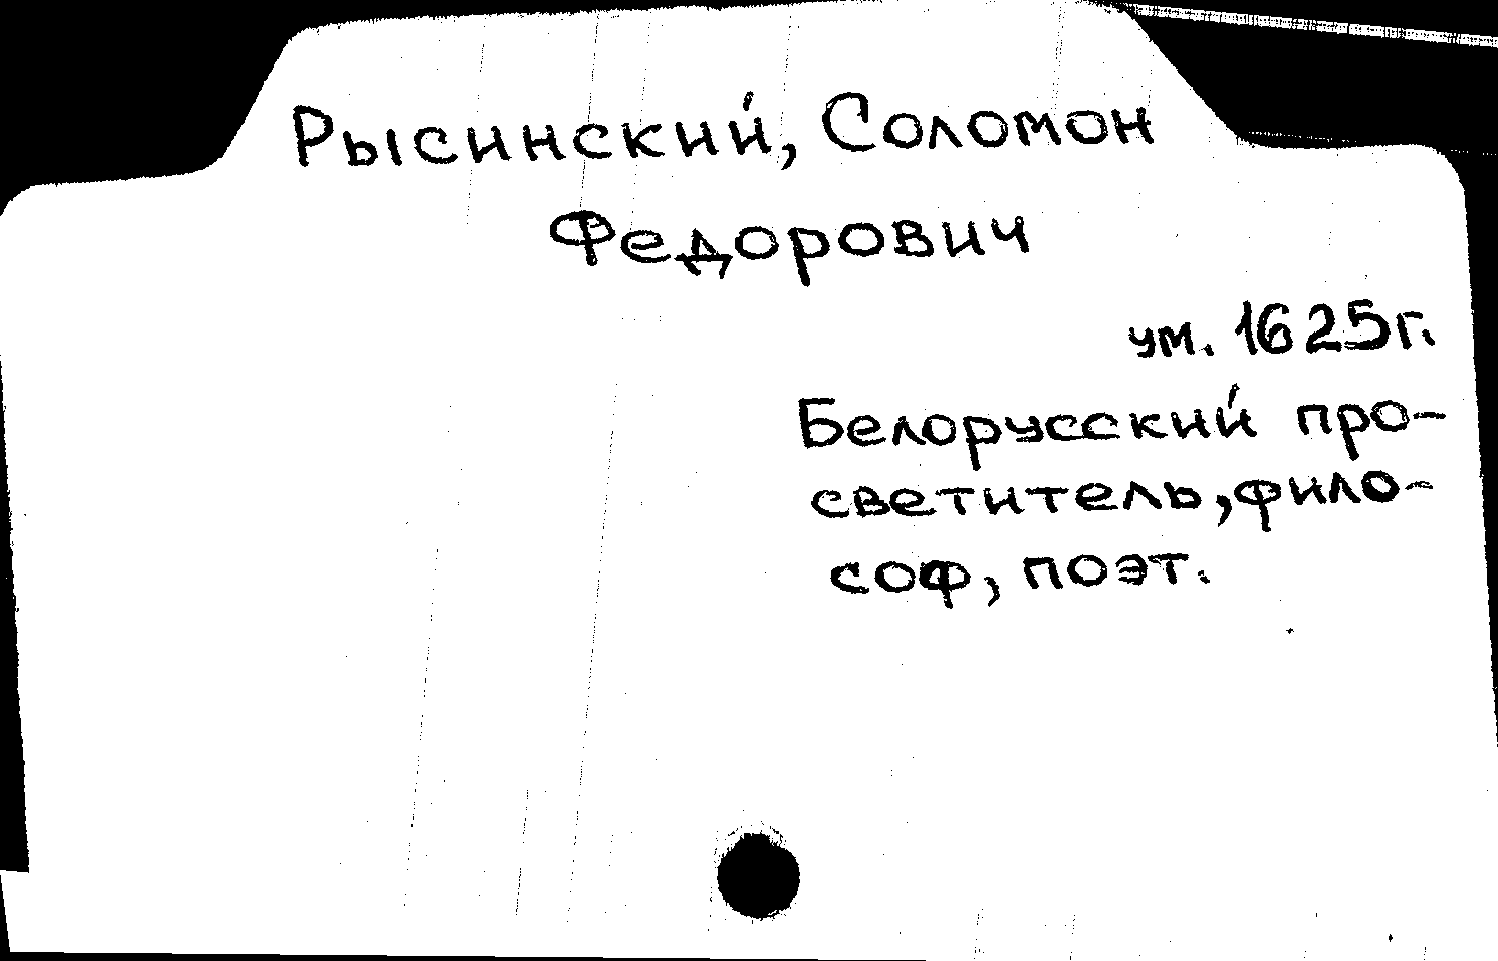 Рысинский, Соломон
Федорович
ум. 1625г.
Белорусский про-
светитель, фило-
соф, поэт.